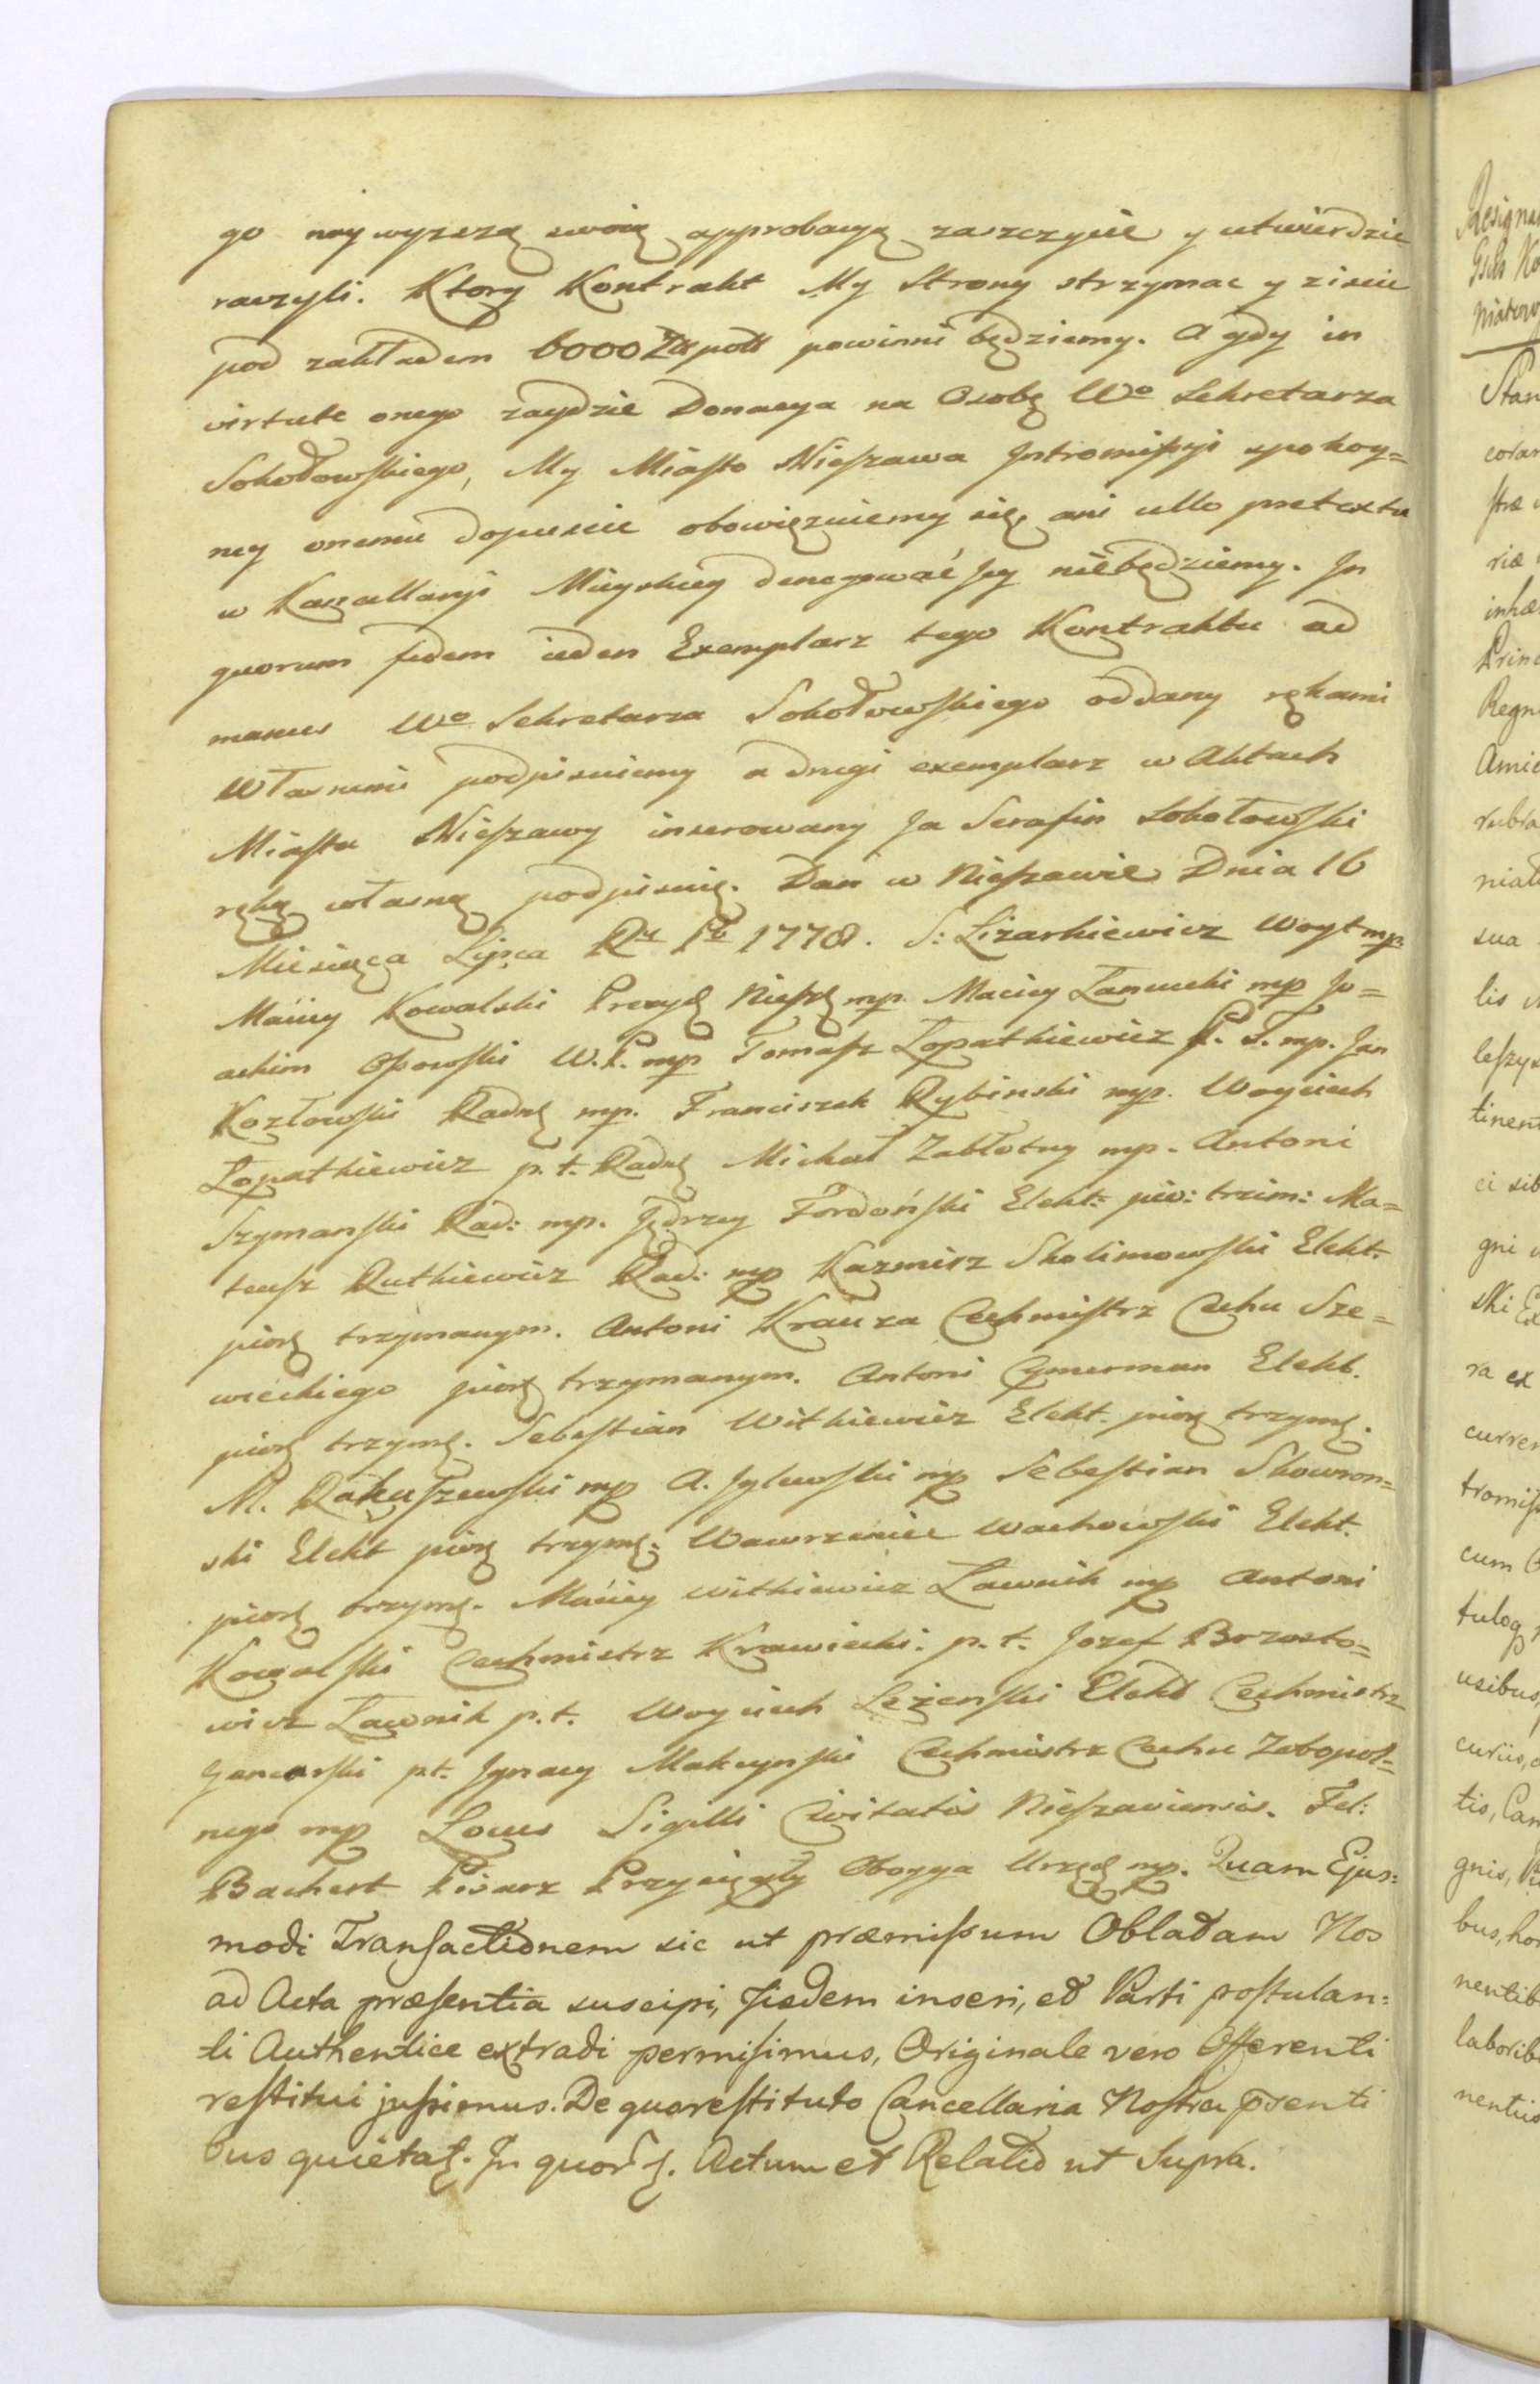 go naywyzszą swoią approbacyą zaszczycic y utwierdzic
raczyli. Ktory Kontrakt My Strony strzymac y ziscic
pod zakładem 6000 Złł poll powinni będziemy. A gdy in
virtute onego zaydzie Donacya na Osobę Wo Sekretarza
Sokołowskiego, My Miasto Nieszawa Intromissyi spokoy=
ney onemu dopuscic obowięzuiemy się, ani ullo pretextu
w Kancellaryi Mieyskiey denegować Jey niebędziemy. In
quorum fidem ieden Exemplarz tego Kontraktu ad
manus Wo Sekretarza Sokołowskiego oddany rękami
własnemi podpisuiemy a drugi exemplarz w Aktach
Miasta Nieszawy inserowany Ja Serafin Sokołowski
ręką własną podpisuię. Dan w Nieszawie Dnia 16
Miesiąca Lipca Ru Po 1778. S: Lizarkiewicz Woyt mp.
Maciey Kowalski Prezyd Niesz mp. Maciey Łanucki mp Jo=
achim Ossowski W.P. mp Tomasz Łopatkiewicz P. T. mp. Jan
Kozłowski Radny mp. Franciszek Rybinski mp. Woyciech
Łopatkiewicz p. t. Radny Michał Zabłotny mp. Antoni
Szymanski Rad: mp. Jędrzey Fordoński Elekt: pió: trzim: Ma=
teusz Rutkiewicz Rad: mp Kazmirz Skolimowski Elekt.
piorę trzymanym. Antoni Krauza Cechmistrz Cechu Sze=
wieckiego piorę trzymanym. Antoni Cymerman Elekt.
piorę trzymę. Sebestian Witkiewicz Elekt. piorę trzymę.
M. Rakuszewski mp A. Jylewski mp Sebestian Skowron=
ski Elekt piorę trzymę: Wawrzeniec Wachowski Elekt.
piorę trzymę. Maciey Witkiewicz Ławnik mp Antoni
Kowalski Cechmistrz Krawiecki. p. t. Jozef Brzosto=
wicz Ławnik p.t. Woyciech Leżenski Elekt Cechmistrz
Gancarski p.t. Jgnacy Makcynski Cechmistrz Cechu Zobopol=
nego mp Locus Sigilli Civitatis Nieszaviensis. Fel:
Bachert Pisarz Przysięgły Oboyga Urzęd mp. Quam Ejus=
modi Transactionem sic ut præmissum Obladam Nos
ad Acta præsentia suscipi, Jisdem inseri, et Parti postulan=
ti Authentice extradi permisimus, Originale vero Offerenti
restitui jussimus. De quo restituto Cancellaria Nostra psenti
bus quietat. In quor f. Actum et Relatio ut Supra.